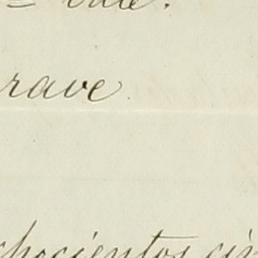 vale.
rave.
chocientos cin